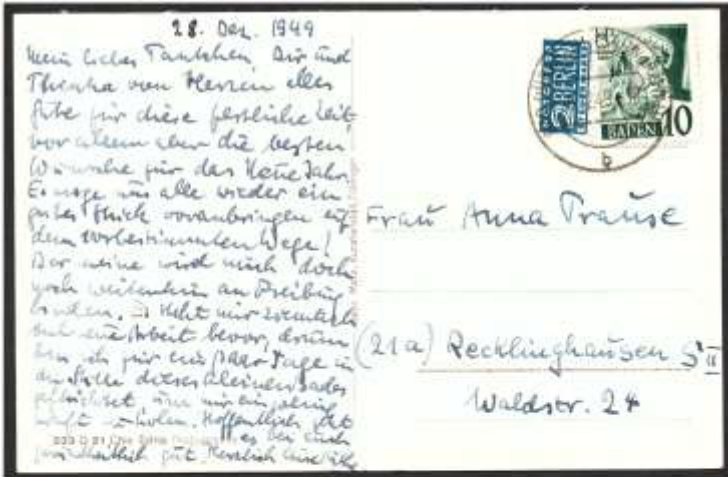 28. Dez. 1949
Mein liebes Tantchen, Dir und
Thenka von Herzen alles
Gute für diese festliche Zeit,
vor allem aber die besten
Wünsche für das Neue Jahr.
Es möge uns alle wieder ein
gutes Stück voranbringen auf
dem vorbestimmten Wege!
Der meine wird mich doch
noch weiterhin an Freiburg
binden. Es steht mir ziemlich
viel Arbeit bevor, drum
bin ich für ein paar Tage in
die Stille dieses kleinen Bades
geflüchtet, um mir ein wenig
Kraft zu holen. Hoffentlich geht
es bei euch
gesundheitlich gut. Herzlich
NOTOPFER
2 BERLIN
STEUERMARKE
BADEN 10
b
Frau Anna Trause
(21a) Recklinghausen S II
Waldstr. 24